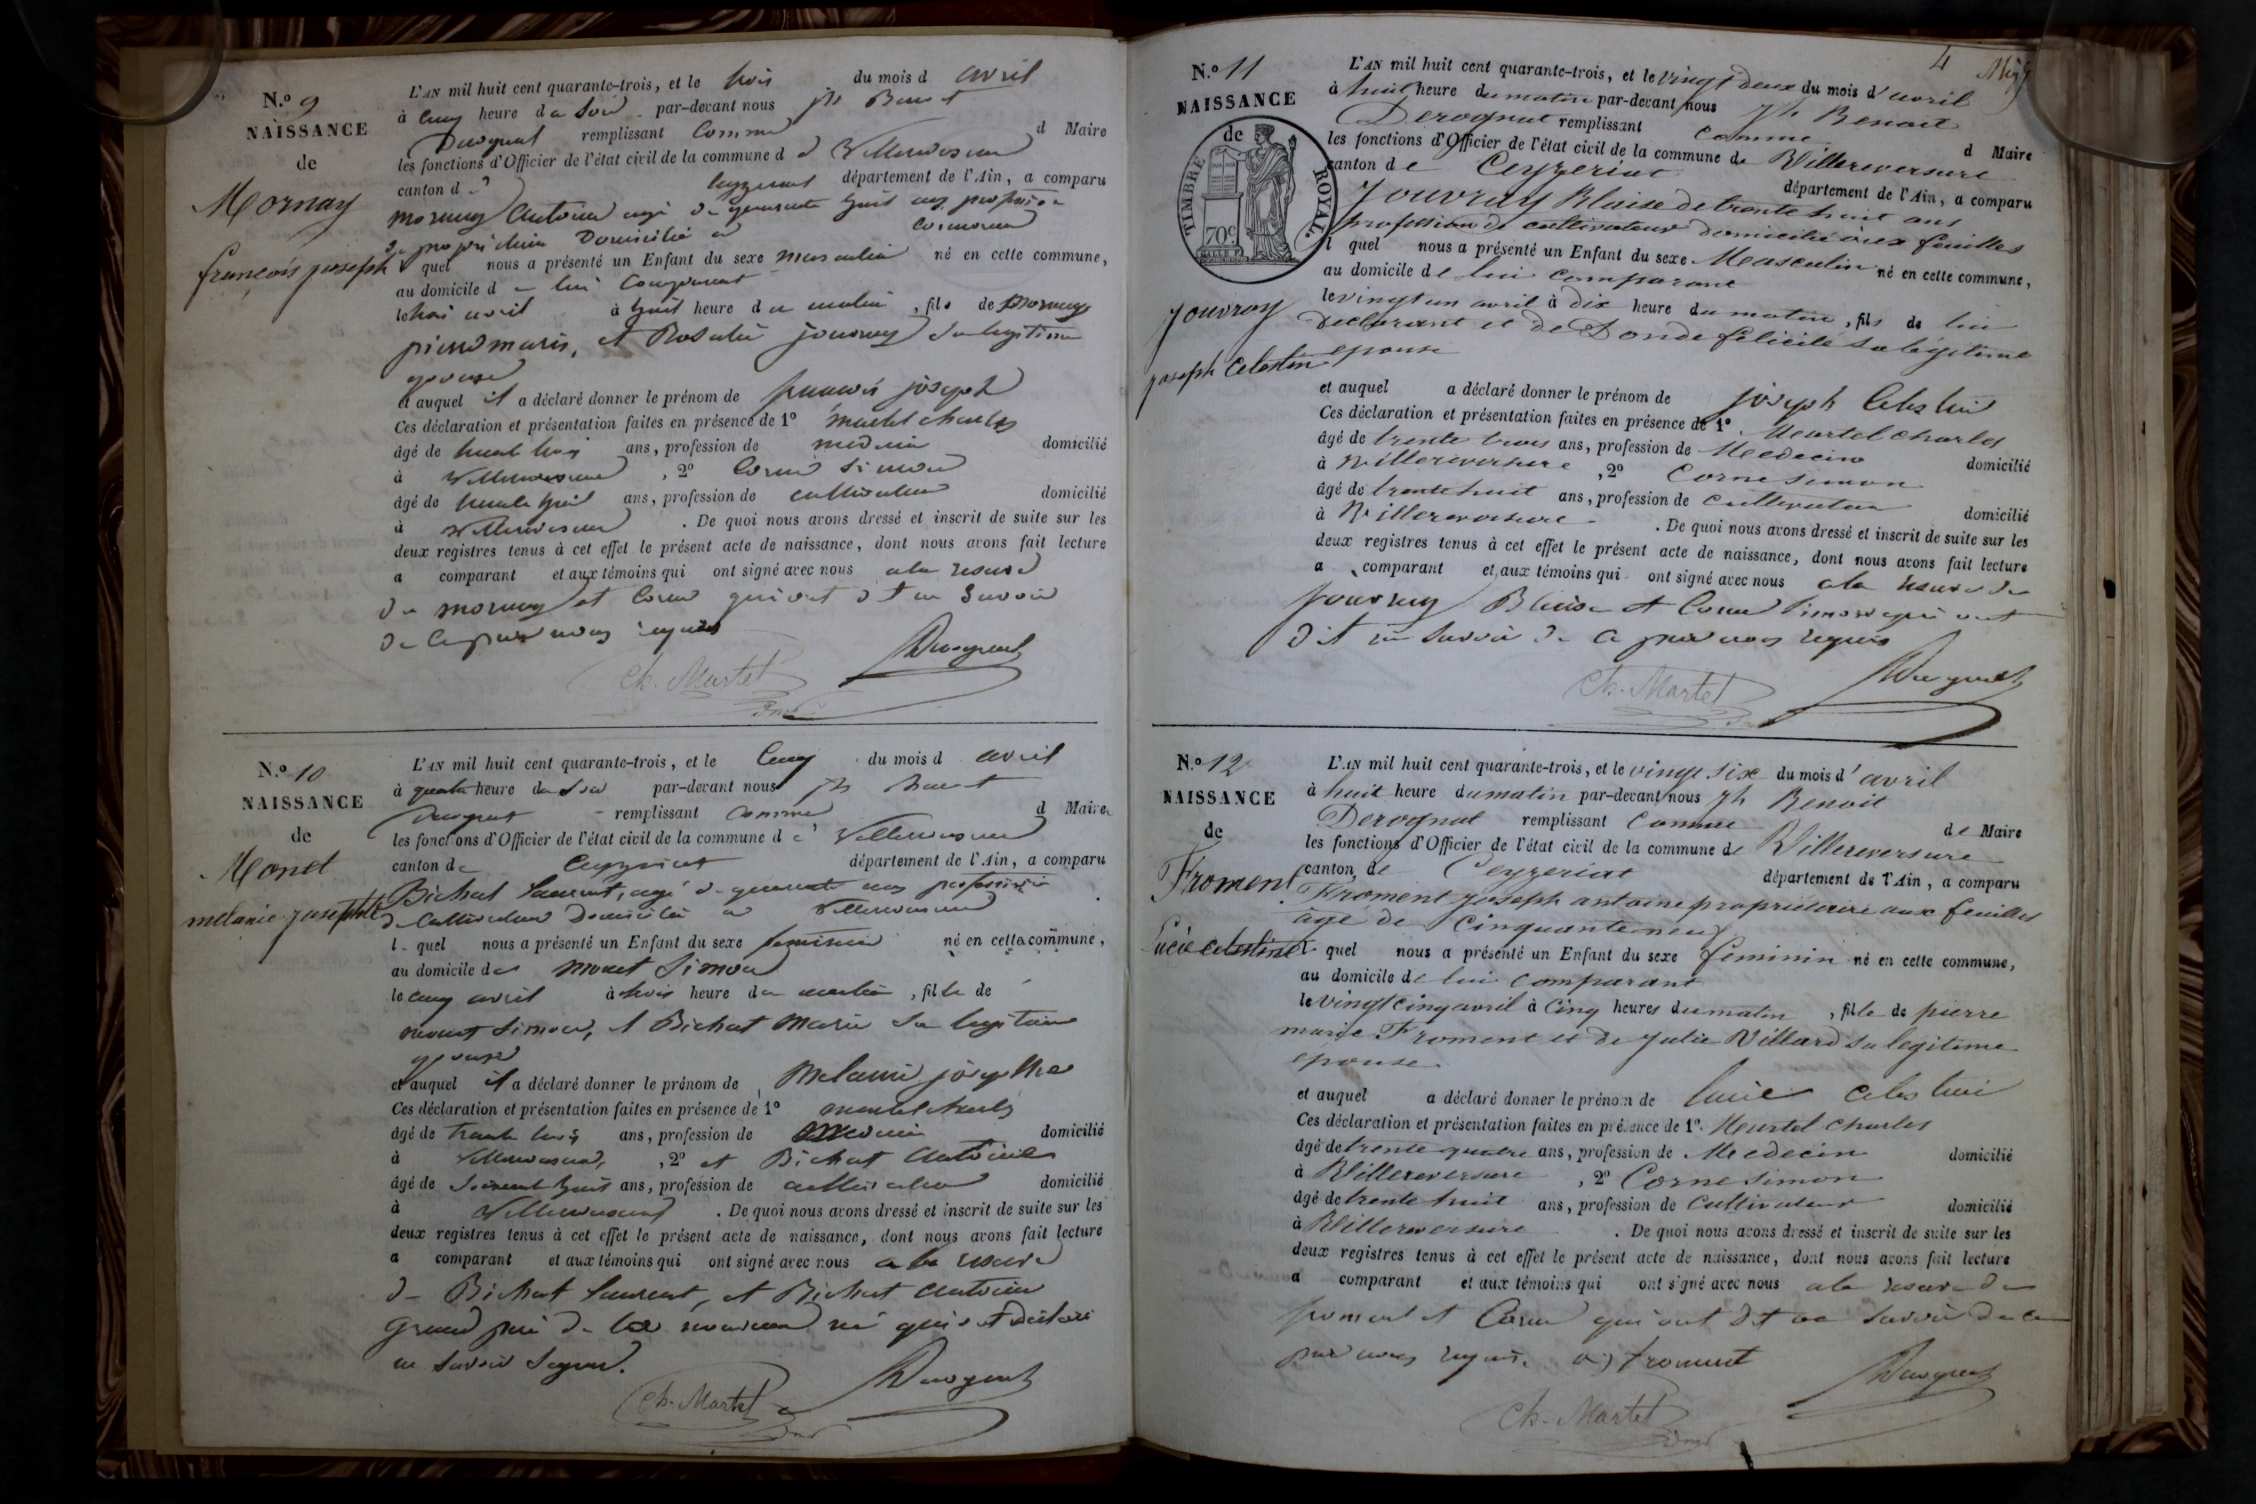 N.º 9
NAISSANCE
de
Mornay
françois joseph
L'AN mil huit cent quarante-trois, et le trois du mois d avril
à cinq heure du soir par-devant nous jh Benoit
Derognat remplissant comme d Maire
les fonctions d'Officier de l'état civil de la commune d e Villereversure
canton d e Ceyzeriat département de l'Ain, a comparu
mornay antoine agé de quarante huit ans profession
de propriétaire Domicilié a
l quel nous a présenté un Enfant du sexe masculin né en cette commune,
au domicile d e lui Comparant
le trois avril à huit heure du matin, fils de Mornay
pierre marie, et Rosalie jouvray sa legitime
epouse
et auquel il a déclaré donner le prénom de francois joseph
Ces déclaration et présentation faites en présence de 1º martel charles
âgé de trente trois ans, profession de medecin domicilié
à Villereversure, 2º Corne Simon
âgé de trente huit ans, profession de cultivateur domicilié
à Villereversure. De quoi nous avons dressé et inscrit de suite sur les
deux registres tenus à cet effet le présent acte de naissance, dont nous avons fait lecture
a comparant et aux témoins qui ont signé avec nous a la reserve
de mornay et Corne qui ont dit ne savoir
de ce par nous requis
Ch. Martel Derognat
N.º 10
NAISSANCE
de
Monet
melanie josephte
L'AN mil huit cent quarante-trois, et le cinq du mois d avril
à quatre heure du soir par-devant nous jh Benoit
Derognat remplissant comme d Maire
les fonctions d'Officier de l'état civil de la commune d e Villereversure
canton de Ceyzeriat département de l'Ain, a comparu
Bichat laurent, agé de quarante ans profession
de Cultivateur Domicilié a Villereversure
l quel nous a présenté un Enfant du sexe feminin né en cette commune,
au domicile de monet Simon
le cinq avril à trois heure du matin, fille de
monet simon, et Bichat Marie sa legitime
epouse
et auquel il a déclaré donner le prénom de Melanie josephte
Ces déclaration et présentation faites en présence de 1º martel charles
âgé de trente trois ans, profession de medecin domicilié
à Villereversure, 2º et Bichat Antoine
âgé de soixante huit ans, profession de cultivateur domicilié
à Villereversure. De quoi nous avons dressé et inscrit de suite sur les
deux registres tenus à cet effet le présent acte de naissance, dont nous avons fait lecture
a comparant et aux témoins qui ont signé avec nous a la reserve
de Bichat laurent, et Bichat Antoine
Grand père de la nouveau né qui ont déclaré
ne savoir signer.
Ch. Martel Derognat
4
N.º 11
NAISSANCE
de
TIMBRE ROYAL.
70c
Jouvray
joseph Celestin
L'AN mil huit cent quarante-trois, et le vingt deux du mois d'avril
à huit heure du matin par-devant nous jh Benoit
Derognat remplissant comme d Maire
les fonctions d'Officier de l'état civil de la commune de Villereversure
canton de Ceyzeriat département de l'Ain, a comparu
Jouvray Blaise de trente huit ans
profession de cultivateur domicilié aux feuilles
l quel nous a présenté un Enfant du sexe Masculin né en cette commune,
au domicile de lui comparant
le vingt un avril à dix heure du matin, fils de lui
Declarant et de Donde félicité sa légitime
epouse
et auquel a déclaré donner le prénom de joseph Celestin
Ces déclaration et présentation faites en présence de 1º Martel charles
âgé de trente trois ans, profession de Medecin domicilié
à Villereversure, 2º Corne simon
âgé de trente huit ans, profession de cultivateur domicilié
à Villereversure. De quoi nous avons dressé et inscrit de suite sur les
deux registres tenus à cet effet le présent acte de naissance, dont nous avons fait lecture
a comparant et aux témoins qui ont signé avec nous a la reserve de
Jouvray Blaise et Corne Simon qui ont
dit ne savoir de ce par nous requis
Ch. Martel Derognat
N.º 12
NAISSANCE
de
Froment
Lucie celestine
L'AN mil huit cent quarante-trois, et le vingt six du mois d'avril
à huit heure du matin par-devant nous jh Benoit
Derognat remplissant Comme de Maire
les fonctions d'Officier de l'état civil de la commune de Villereversure
canton de Ceyzeriat département de l'Ain, a comparu
Froment joseph antoine propriétaire aux feuilles
age de cinquante neuf
l quel nous a présenté un Enfant du sexe féminin né en cette commune,
au domicile de lui comparant
le vingt cinq avril à cinq heures du matin, fille de pierre
marie Froment et de Julie Villard sa legitime
epouse
et auquel a déclaré donner le prénom de lucie Celestine
Ces déclaration et présentation faites en présence de 1º. Martel charles
âgé de trente quatre ans, profession de Medecin domicilié
à Villereversure, 2º Corne simon
âgé de trente huit ans, profession de Cultivateur domicilié
à Villereversure. De quoi nous avons dressé et inscrit de suite sur les
deux registres tenus à cet effet le présent acte de naissance, dont nous avons fait lecture
a comparant et aux témoins qui ont signé avec nous a la reserve de
froment et Corne qui ont dit ne savoir de ce
par nous requis. froment
Ch. Martel Derognat